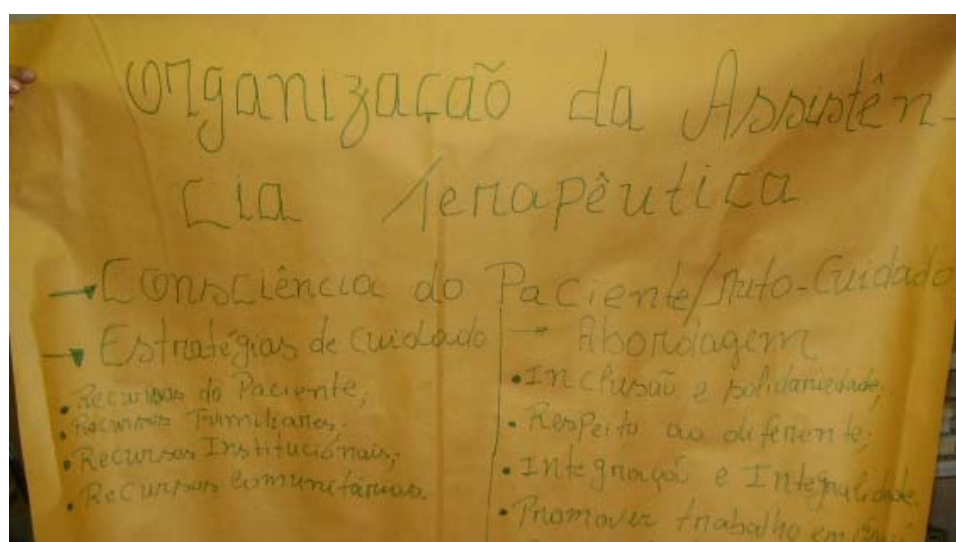 Organização da Assistên-
cia Terapêutica
→ Consciência do Paciente/Auto-Cuidado
→ Estratégias de cuidado
• Recursos do Paciente;
• Recursos Familiares.
• Recursos Institucionais;
• Recursos Comunitários.
→ Abordagem
• Inclusão e solidariedade;
• Respeito ao diferente;
• Integração e Integralidade.
• Promover trabalho em